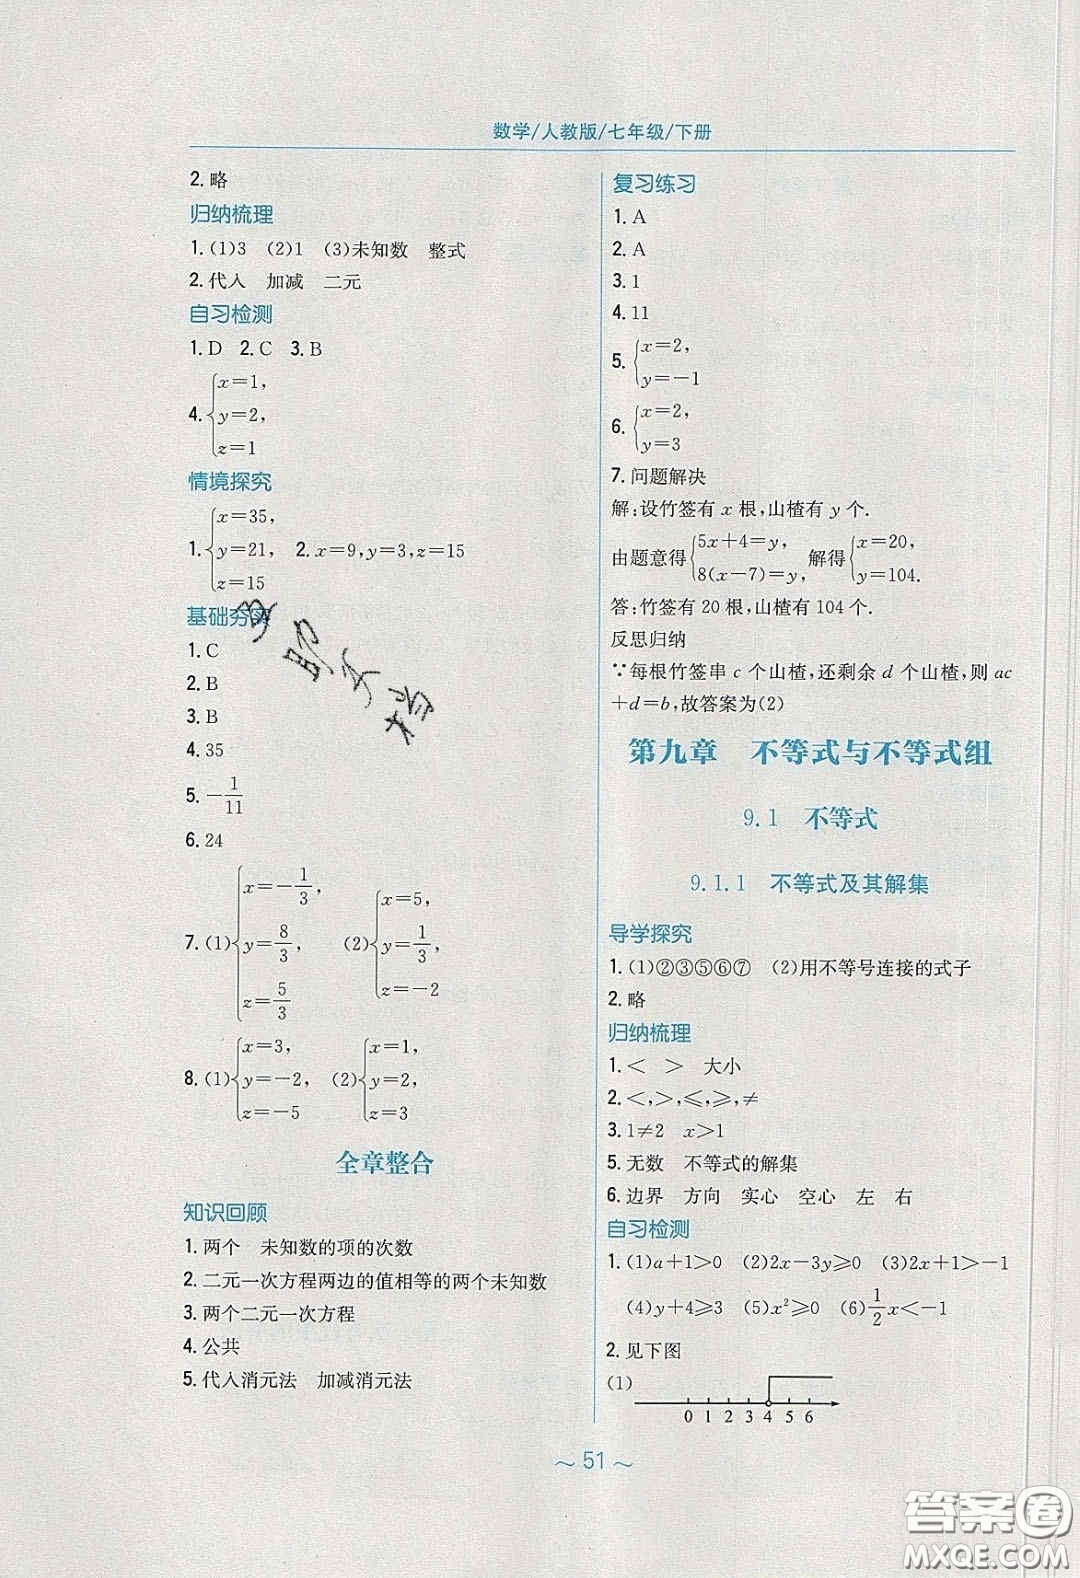 数学/人教版/七年级/下册
2. 略
归纳梳理
1. (1)3 (2)1 (3)未知数 整式
2. 代入 加减 二元
自习检测
1. D 2. C 3. B
4. {x=1,
y=2,
z=1
情境探究
1. {x=35,
y=21, 2. x=9,y=3,z=15
z=15
基础夯实
1. C
2. B
3. B
4. 35
5. -1/11
6. 24
7. (1){x=-1/3, y=8/3, z=5/3 (2){x=5, y=1/3, z=-2
8. (1){x=3, y=-2, z=-5 (2){x=1, y=2, z=3
全章整合
知识回顾
1. 两个 未知数的项的次数
2. 二元一次方程两边的值相等的两个未知数
3. 两个二元一次方程
4. 公共
5. 代入消元法 加减消元法
复习练习
1. A
2. A
3. 1
4. 11
5. {x=2,
y=-1
6. {x=2,
y=3
7. 问题解决
解:设竹签有 x 根,山楂有 y 个.
由题意得{5x+4=y, 8(x-7)=y, 解得{x=20, y=104.
答:竹签有 20 根,山楂有 104 个.
反思归纳
∵每根竹签串 c 个山楂,还剩余 d 个山楂,则 ac
+d=b,故答案为(2)
第九章 不等式与不等式组
9.1 不等式
9.1.1 不等式及其解集
导学探究
1. (1)②③⑤⑥⑦ (2)用不等号连接的式子
2. 略
归纳梳理
1. < > 大小
2. <,>,⩽,⩾,≠
3. 1≠2 x>1
5. 无数 不等式的解集
6. 边界 方向 实心 空心 左 右
自习检测
1. (1)a+1>0 (2)2x-3y⩾0 (3)2x+1>-1
(4)y+4⩾3 (5)x²⩾0 (6)1/2x<-1
2. 见下图
(1)
0 1 2 3 4 5 6
～51～
答案圈
MXQE.COM